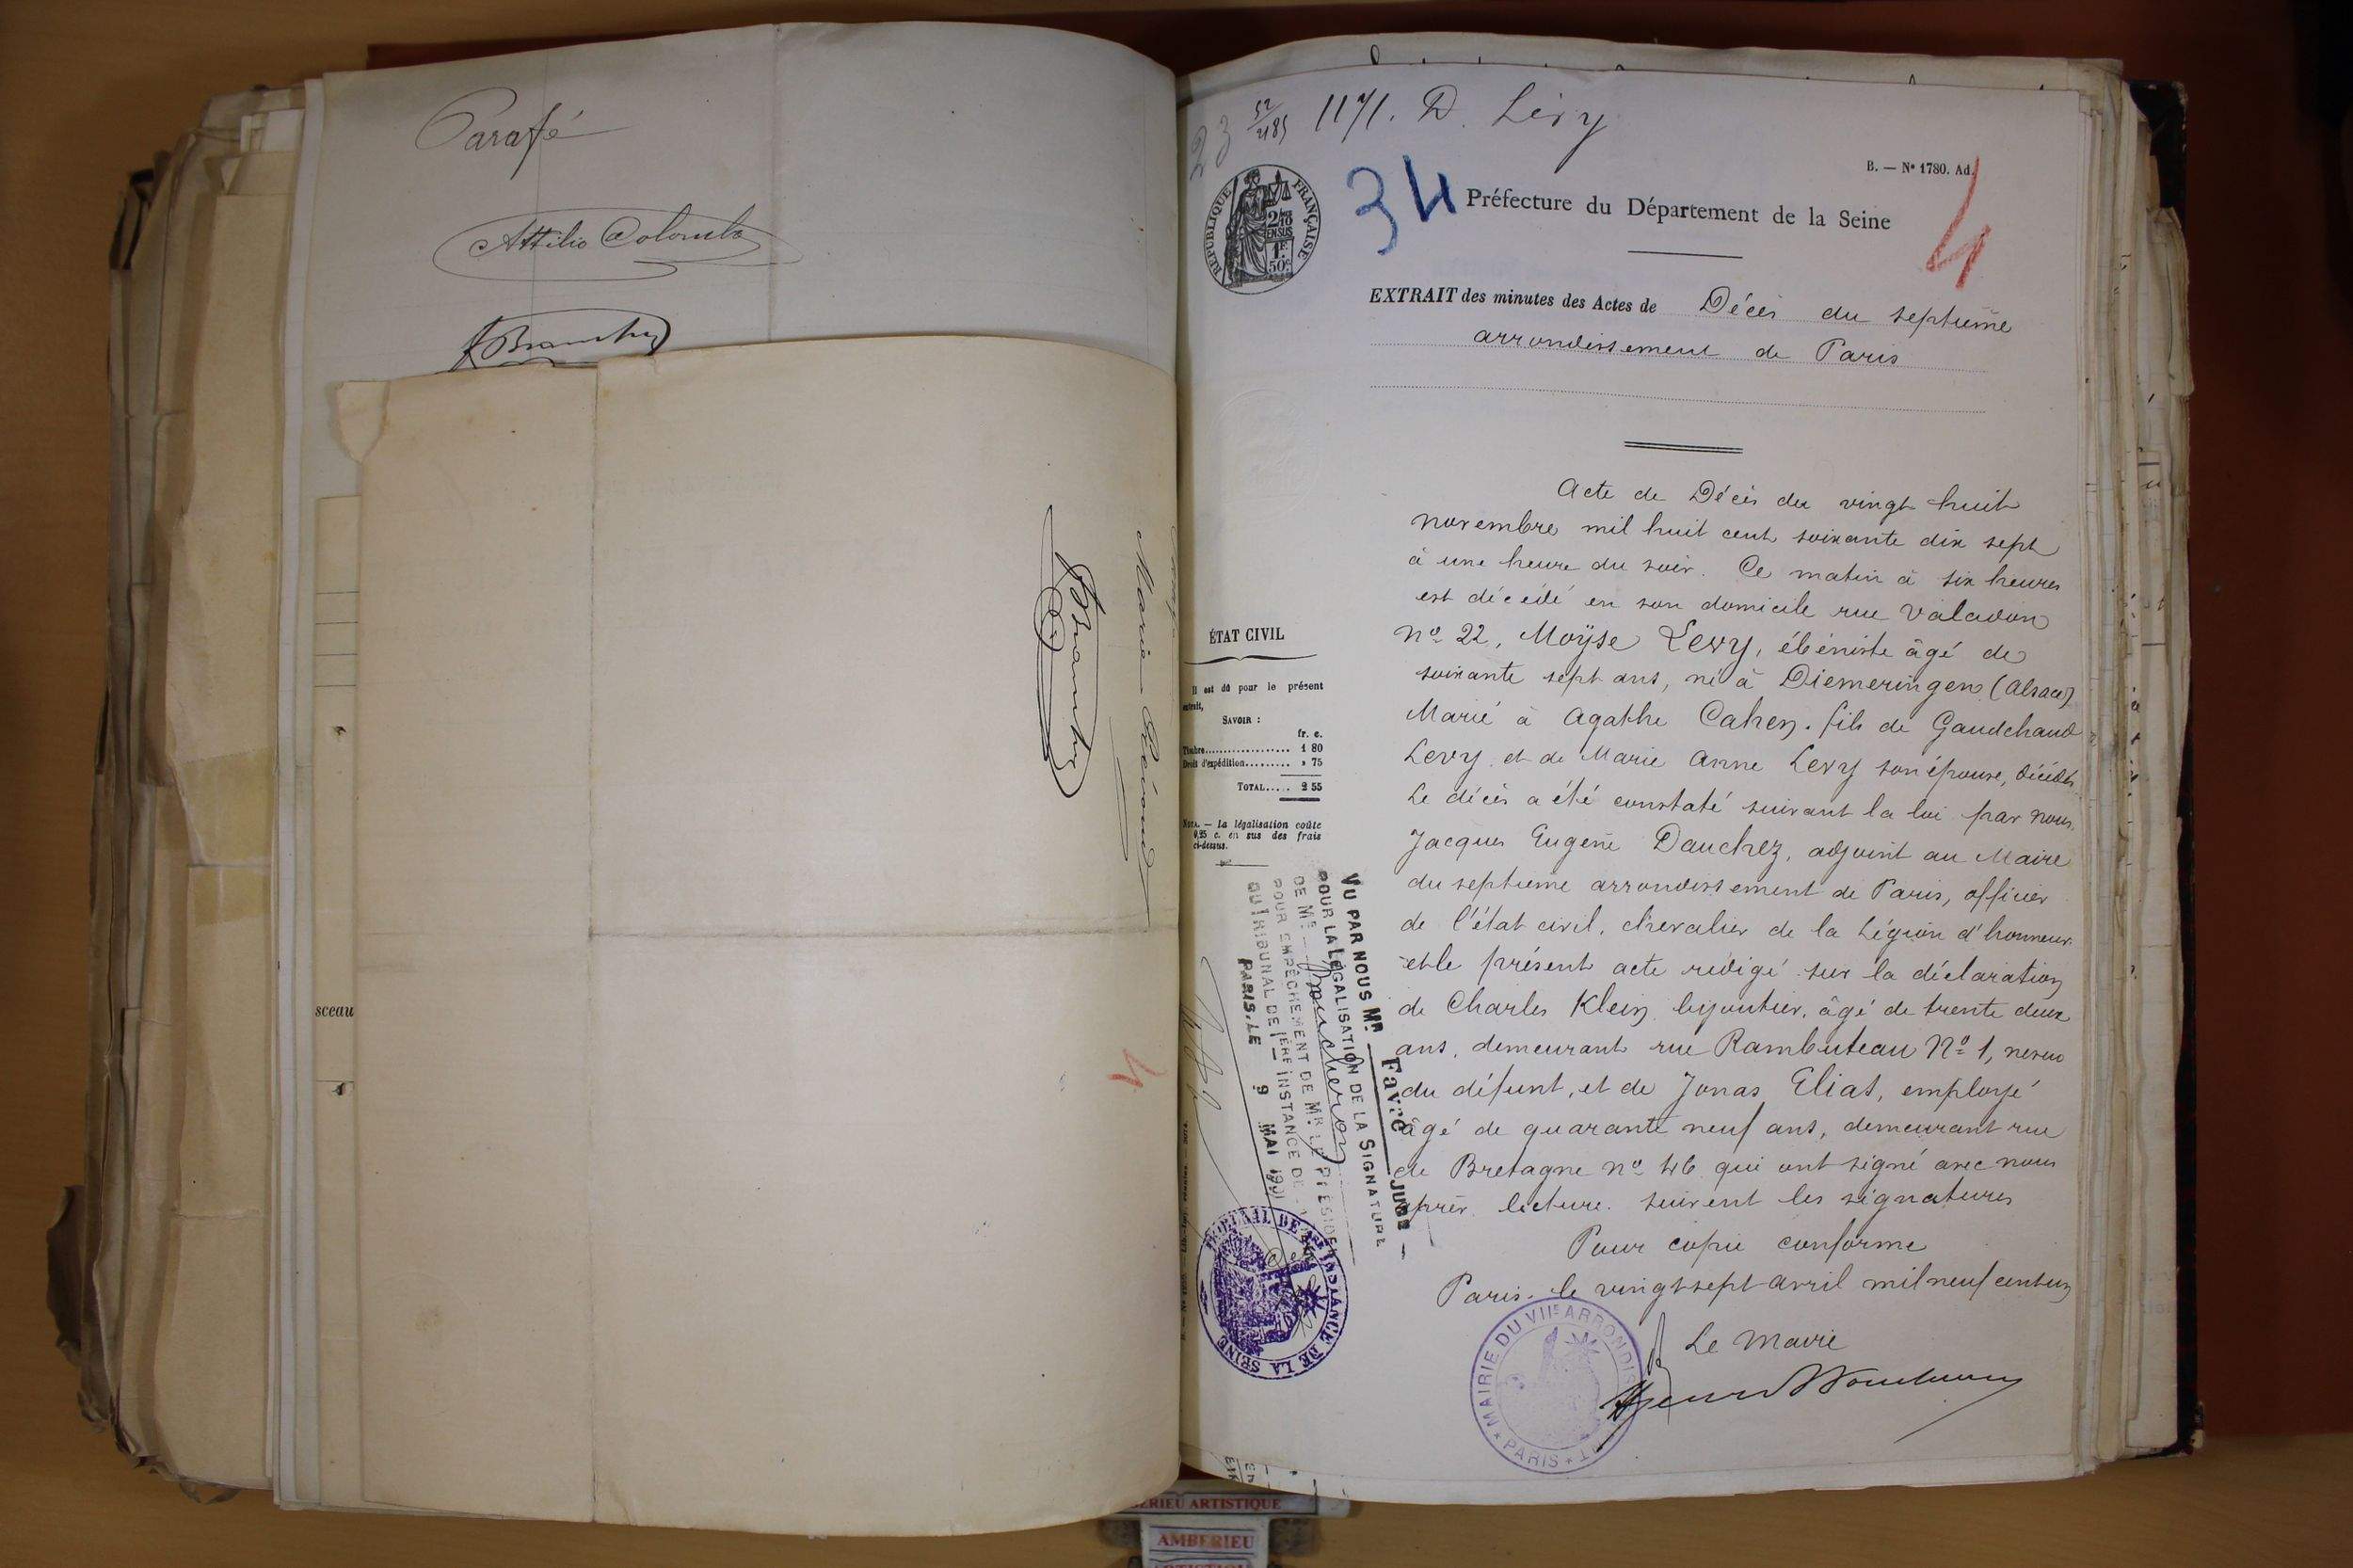 Parafé
Attilio Colombo
sceau
1171. D. Lévy
34
B. — No 1780. Ad.
4
RÉPUBLIQUE FRANÇAISE
2/10
EN SUS
1F
50c
Préfecture du Département de la Seine
EXTRAIT des minutes des Actes de Décès du septième
arrondissement de Paris
Acte de Décès du vingt huit
novembre mil huit cent soixante dix sept
à une heure du soir. Ce matin à six heures
est décédé en son domicile rue Valadon
no 22, Moÿse Levy, ébéniste âgé de
soixante sept ans, né à Diemeringen (Alsace)
Marié à Agathe Cahen. fils de Gaudchaud
Levy et de Marie Anne Levy son épouse, décédés.
Le décès a été constaté suivant la loi par nous,
Jacques Eugène Dauchez, adjoint au Maire
du septième arrondissement de Paris, officier
de l'état civil, chevalier de la Légion d'honneur.
et le présent acte rédigé sur la déclaration
de Charles Klein bijoutier, âgé de trente deux
ans, demeurant rue Rambuteau No 1, neveu
du défunt, et de Jonas Elias, employé
âgé de quarante neuf ans, demeurant rue
de Bretagne no 46 qui ont signé avec nous
après lecture. suivent les signatures
Pour copie conforme
Paris. le vingt sept avril mil neuf cent un
Le Maire
MAIRIE DU VIIE ARRONDISSEMENT
PARIS
ÉTAT CIVIL
Il est dû pour le présent
extrait,
SAVOIR :
fr. c.
Timbre.................. 1 80
Droit d'expédition......... » 75
TOTAL..... 2 55
NOTA. — La légalisation coûte
0,25 c. en sus des frais
ci-dessus.
VU PAR NOUS MR Favre JUGE
POUR LA LÉGALISATION DE LA SIGNATURE
DE MR
POUR EMPÊCHEMENT DE MR LE PRÉSIDENT
DU TRIBUNAL DE 1ÈRE INSTANCE DE
PARIS, LE 9 MAI 1901
TRIBUNAL DE 1ERE INSTANCE DE LA SEINE
AMBERIEU ARTISTIQUE
AMBERIEU